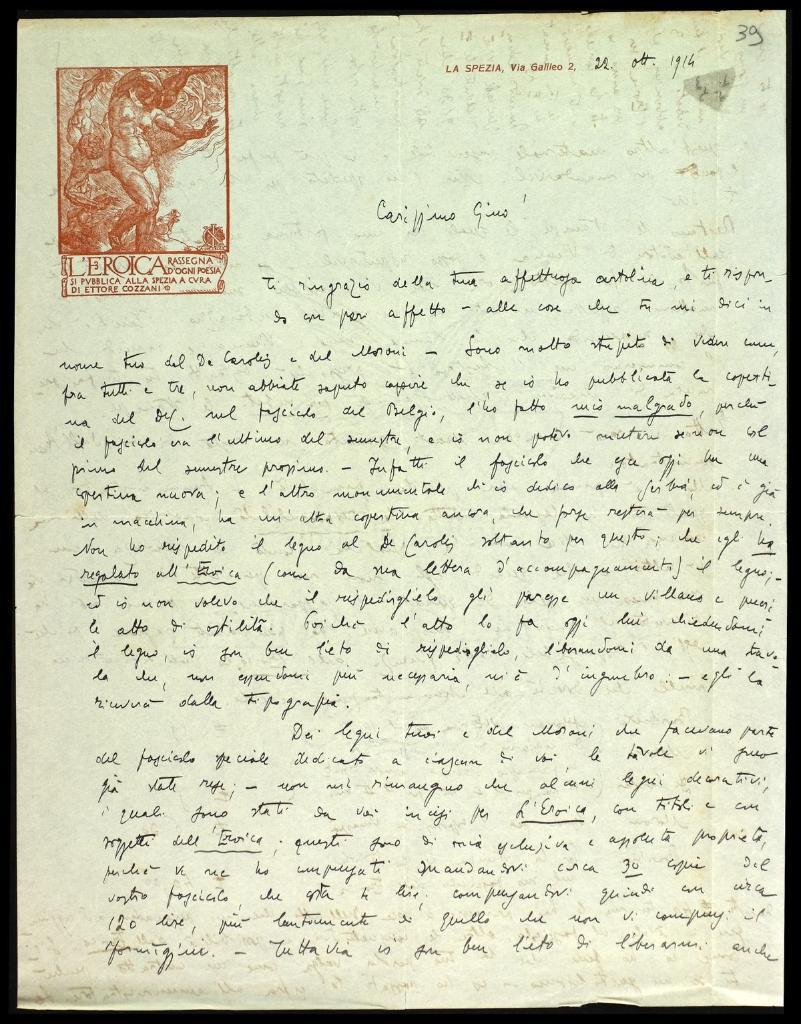 39
LA SPEZIA, Via Galileo 2, 22 ott. 1914
L'EROICA RASSEGNA
D'OGNI POESIA
SI PVBBLICA ALLA SPEZIA A CVRA
DI ETTORE COZZANI
Carissimo Gino!
ti ringrazio della tua affettuosa cartolina, e ti rispon-
do con pari affetto - alle cose che tu mi dici in
nome tuo del De Carolis e del Moroni - Sono molto stupito di vedere come,
fra tutti e tre, non abbiate saputo capire che se io ho pubblicata la coperti-
na del D.C. nel fascicolo del Belgio, l'ho fatto mio malgrado, perché
il fascicolo era l'ultimo del semestre, e io non potevo mutare se non col
primo del semestre prossimo. - Infatti il fascicolo che esce oggi ha una
copertina nuova; e l'altro monumentale ch'io dedico alla Serbia, ed è già
in macchina, ha un'altra copertina ancora, che forse resterà per sempre.
Non ho rispedito il legno al De Carolis soltanto per questo; che egli ha
regalato all'Eroica (come da sua lettera d'accompagnamento) il legno;
ed io non volevo che il rispedirglielo gli paresse un villano e pueri-
le atto di ostilità. Poiché l'atto lo fa oggi lui chiedendomi
il legno, io son ben lieto di rispedirglielo, liberandomi da una tavo-
la che, non essendomi più necessaria, mi è d'ingombro; - egli la
riceverà dalla tipografia.
Dei legni tuoi e del Moroni che facevano parte
del fascicolo speciale dedicato a ciascun di voi, le tavole vi sono
già state rese; - non mi rimangono che alcuni legni decorativi,
i quali sono stati da voi incisi per L'Eroica, con titoli e con
soggetti dell'Eroica; questi sono di mia esclusiva e assoluta proprietà,
perché ve ne ho compensati mandandovi circa 30 copie del
vostro fascicolo, che costa 4 lire, compensandovi quindi con circa
120 lire, più lautamente di quello che non vi compensi il
Formiggini. - Tuttavia io son ben lieto di liberarmi anche